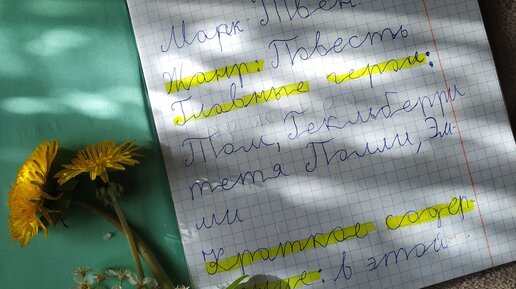 Марк Твен.
Жанр: Повесть
Главные герои:
Том, Гекльберри
тетя Полли, Эм-
ми
Краткое содер-
: в этой